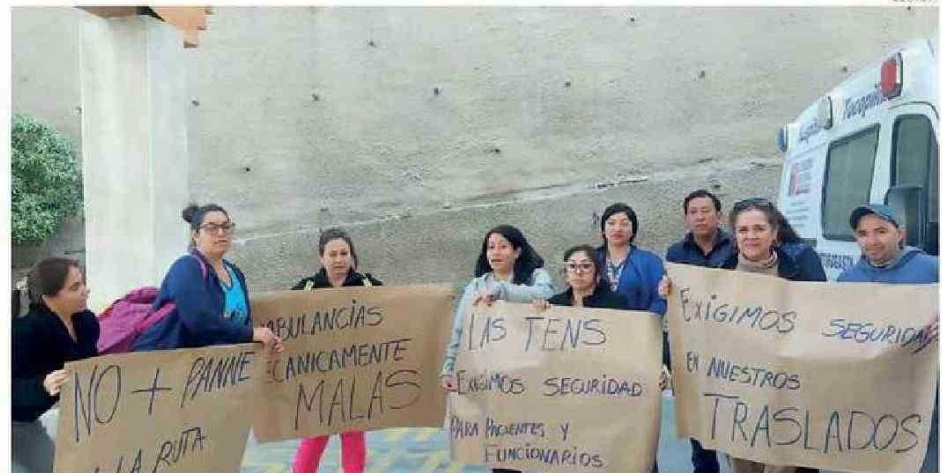 NO + PANNE
LA RUTA
MBULANCIAS
ECANICAMENTE
MALAS
LAS TENS
EXIGIMOS SEGURIDAD
PARA PACIENTES Y
FUNCIONARIOS
EXIGIMOS SEGURIDAD
EN NUESTROS
TRASLADOS
Hospital Tocopilla